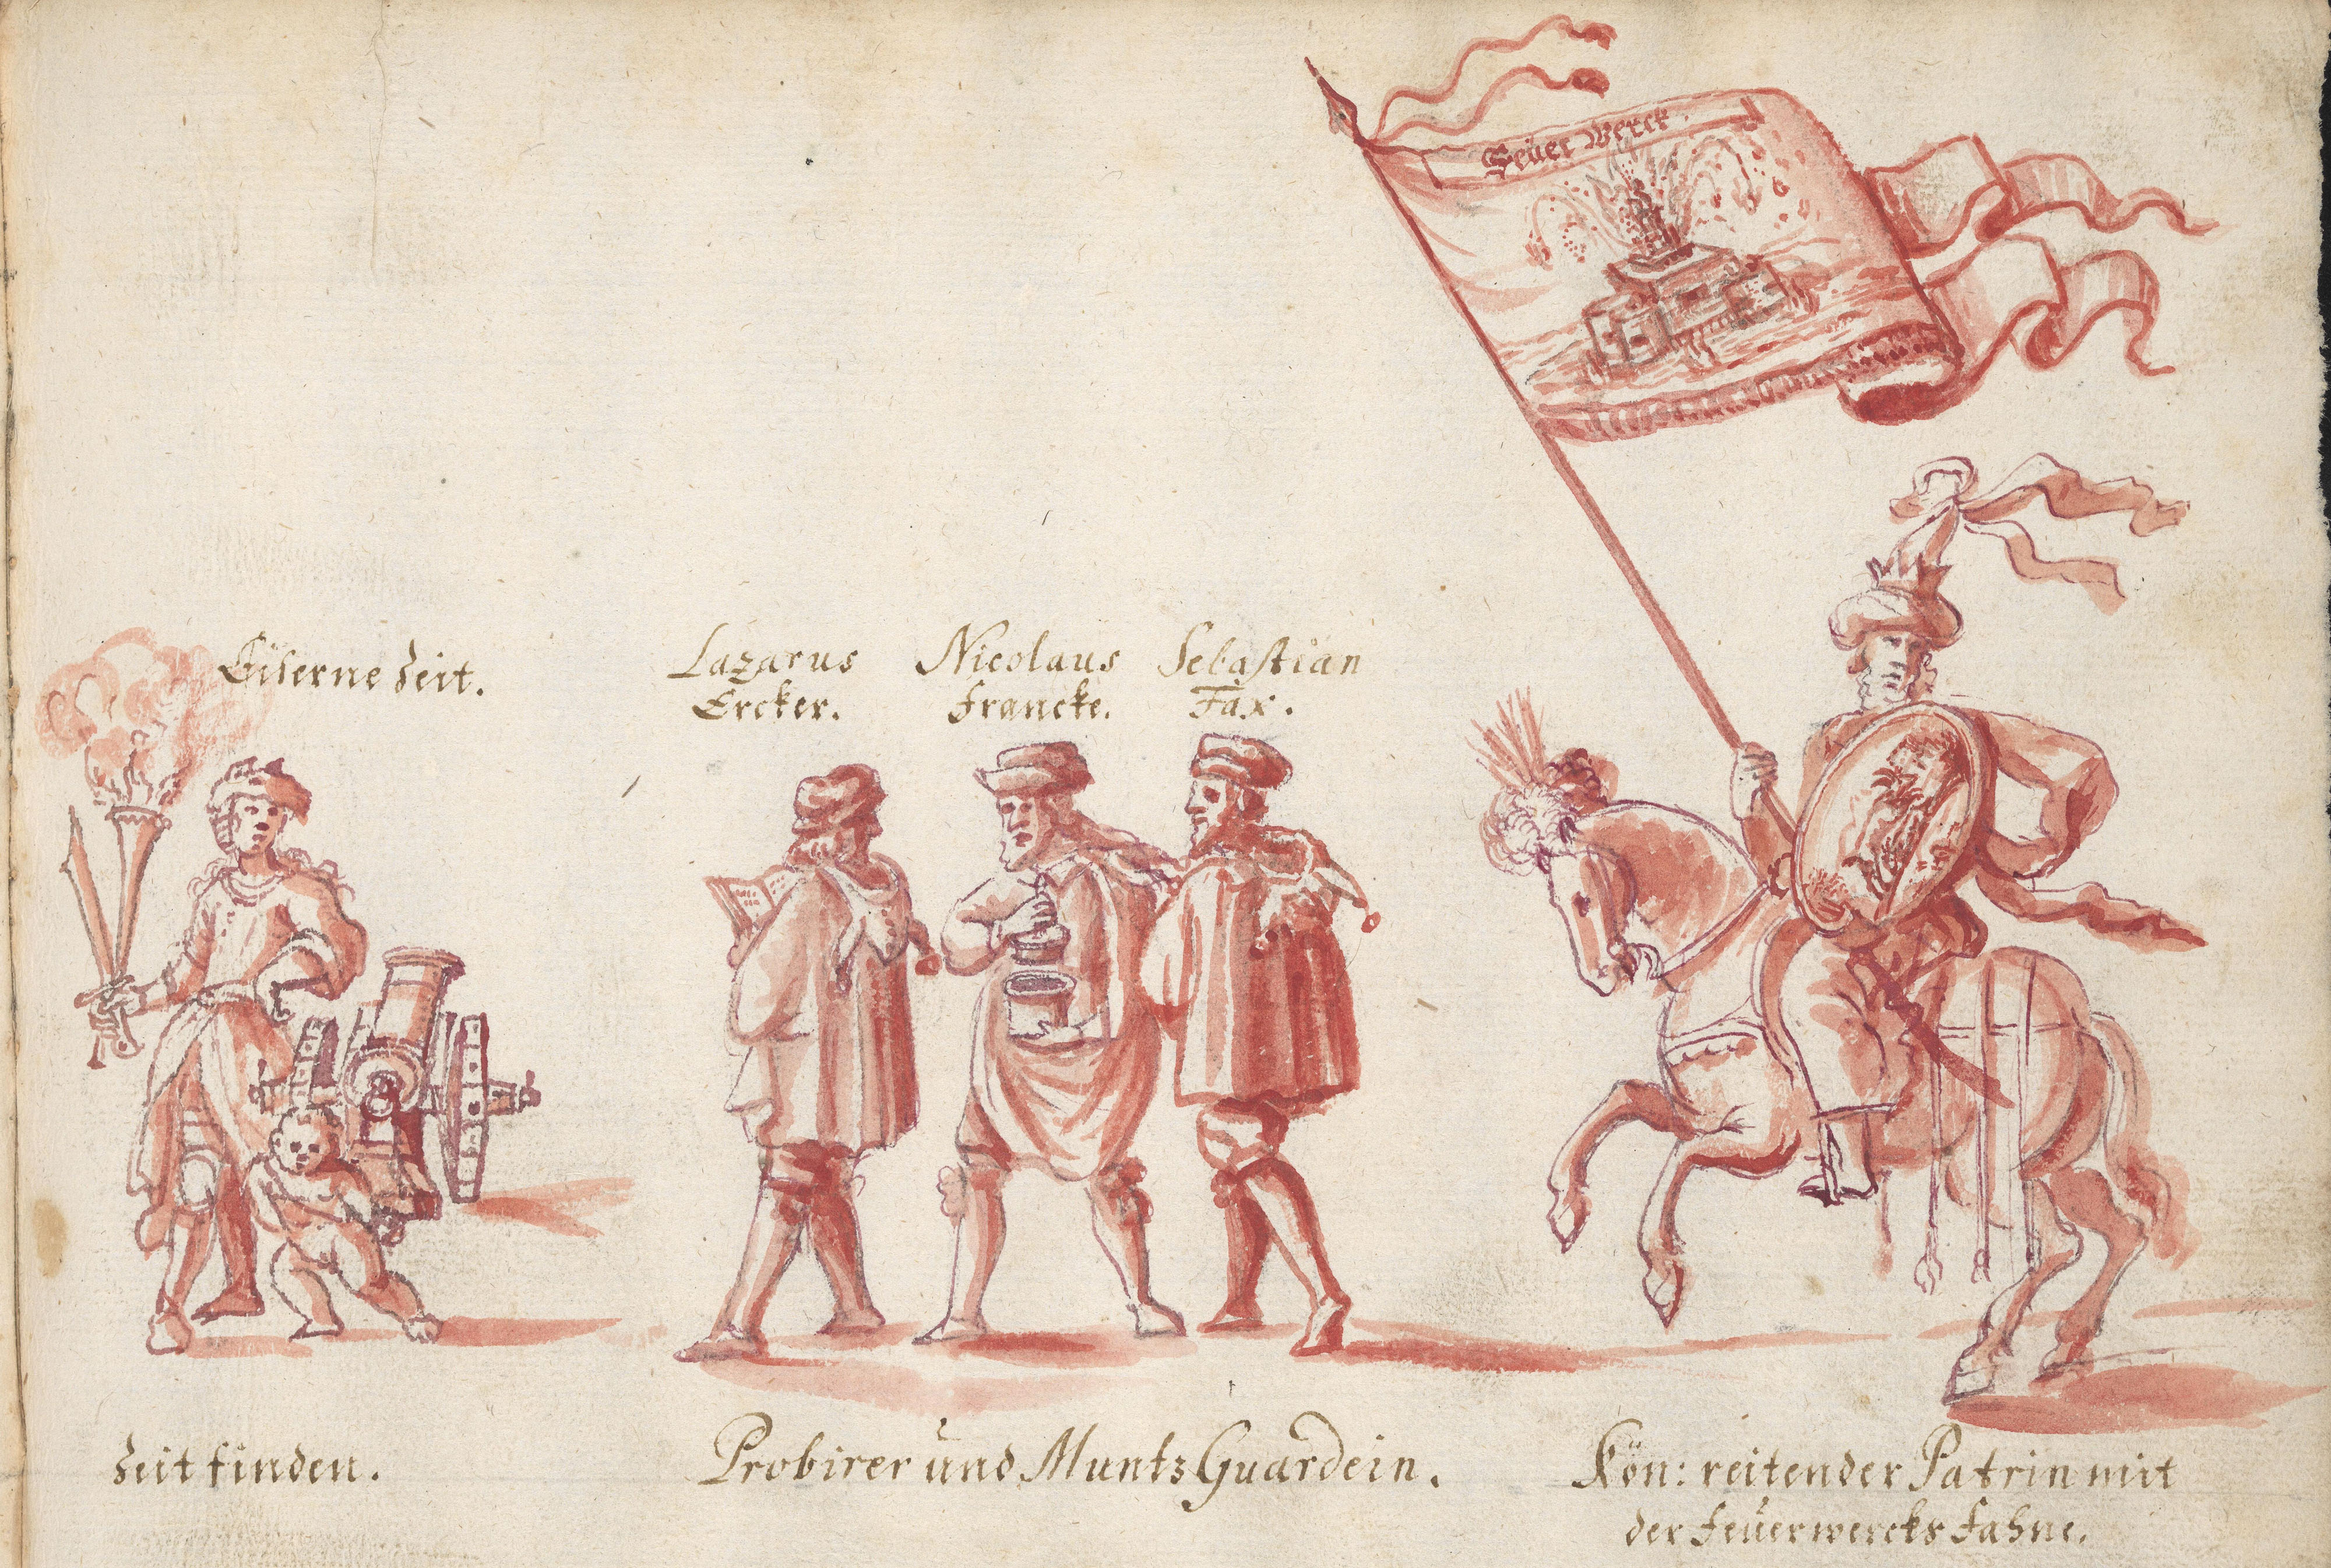 Feüer Werck.
Eiserne Zeit.
Lazarus
Ercker.
Nicolaus
Francke.
Sebastian
Fax.
Zeit finden.
Probirer und Muntz Guardein.
Kön: reitender Patrin mit
der Feüerwercks Fahne.